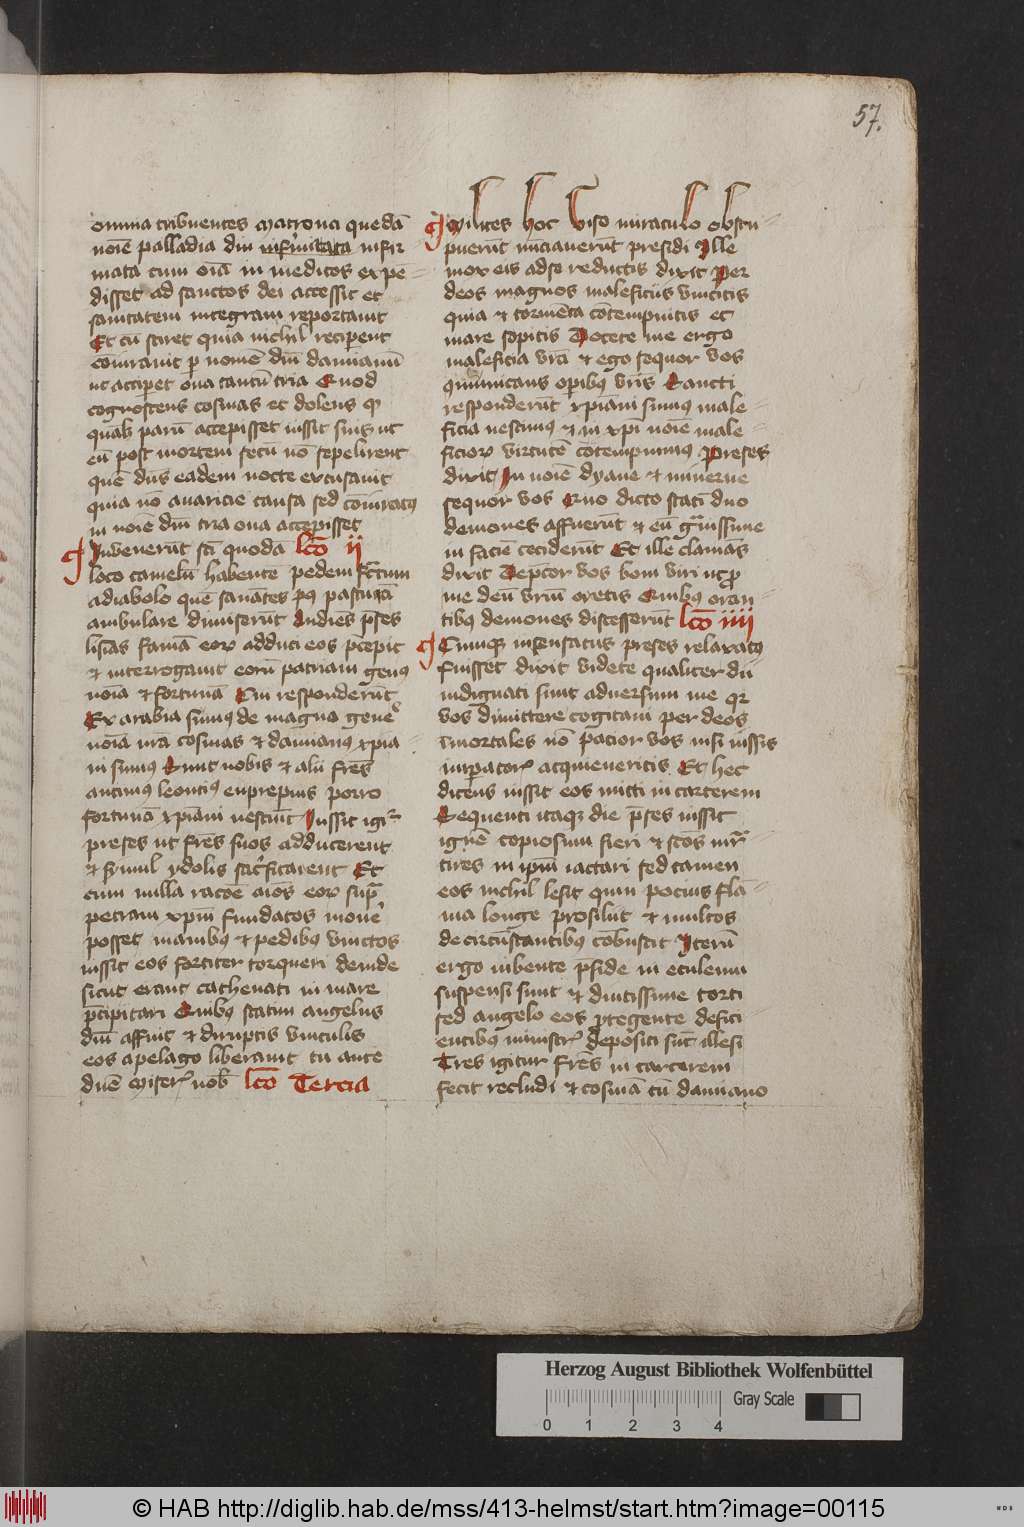 57.
omnia tribuentes Matrona quedā
noīe palladia diu infirmitata infir
mata cum oīa in medicos expē
disset ad sanctos dei accessit et
sanitatem integram reportauit
Et cū sciret quia nichil reciperent
cōiurauit p nomē dnī damianū
ut acciperet oua tantū tria Quod
cognoscens cosmas et dolens
parū accepisset iussit suis ut
eū post mortem secū nō sepelirent
quē dns eadem nocte excusauit
quia nō auaricie causa sed cōiuratꝰ
in noīe dnī tria oua accepisset
Inuenerūt scī quodā lcō ii
loco camelū habentē pedem fractum
adiabolo quē sanātes pꝰ pasturā
ambulare dimiserūt Audiēs pses
lisias famā eoꝝ adduci eos pcepit
& interrogauit eorū patriam genꝰ
noīa & fortunā Cui responderūt
Ex arabia sumꝰ de magno genē
noīa nrā cosmas & damianꝰ xpia
ni sumꝰ Sunt nobis & alii frēs
antimꝰ leonciꝰ euprepius porro
fortunā xpiāni nesciūt Iussit igit
preses ut frēs suos adducerent
& symul ydolis sacrificarent Et
cum nulla racōe aīos eoꝝ sup
petram xpm fundatos mouē
posset manibꝰ & pedibꝰ vinctos
iussit eos fortiter torqueri deinde
sicut erant cathenati in mare
pcipitari Quibꝰ statim angelus
dnī affuit & diruptis vinculis
eos apelago liberauit tu autē
dnē miserē nob lcō Tercia
Milites hoc viso miraculo obstu
puerūt nūciauerūt presidi Ille
mox eis ad se reductis dixit Per
deos magnos maleficiis vincitis
quia & tormēta cōtempnitis et
mare sopitis Docete me ergo
maleficia vrā & ego sequor vos
cōmunicans opibꝰ vrīs Sancti
responderūt xpiāni sumꝰ male
ficia nescimꝰ & in xpi noīe male
ficioꝝ virtutē cōtempnimꝰ Preses
dixit In noīe dyane & minerue
sequor vos Quo dicto statī duo
demones affuerūt & eū grauissime
in faciē ceciderūt Et ille clamās
dixit Depcor vos boni viri ut p
me deū vrm oretis Quibꝰ oran
tibꝰ demones discesserūt lcō iiii
Cumqꝫ insensatus preses relaxatꝰ
fuisset dixit videte qualiter dii
indignati sunt aduersum me qꝛ
vos dimittere cogitaui per deos
īmortales nō pacior vos nisi iussis
imperatoꝝ acquieueritis Et hec
dicens iussit eos mitti in carcerem
Sequenti itaqꝫ die pses iussit
ignē copiosum fieri & scōs mar
tires in ipm iactari sed tamen
eos nichil lesit quin pocius flā
ma longe prosiliit & multos
de circūstantibꝰ cōbussit Iterū
ergo iubente pside in eculeum
suspensi sunt & diutissime torti
sed angelo eos ptegente defici
entibꝰ ministrꝭ depositi sūt illesi
Tres igitur frēs in carcerem
fecit recludi & cosmā cū damiano
Herzog August Bibliothek Wolfenbüttel
Gray Scale
0 1 2 3 4
© HAB http://diglib.hab.de/mss/413-helmst/start.htm?image=00115